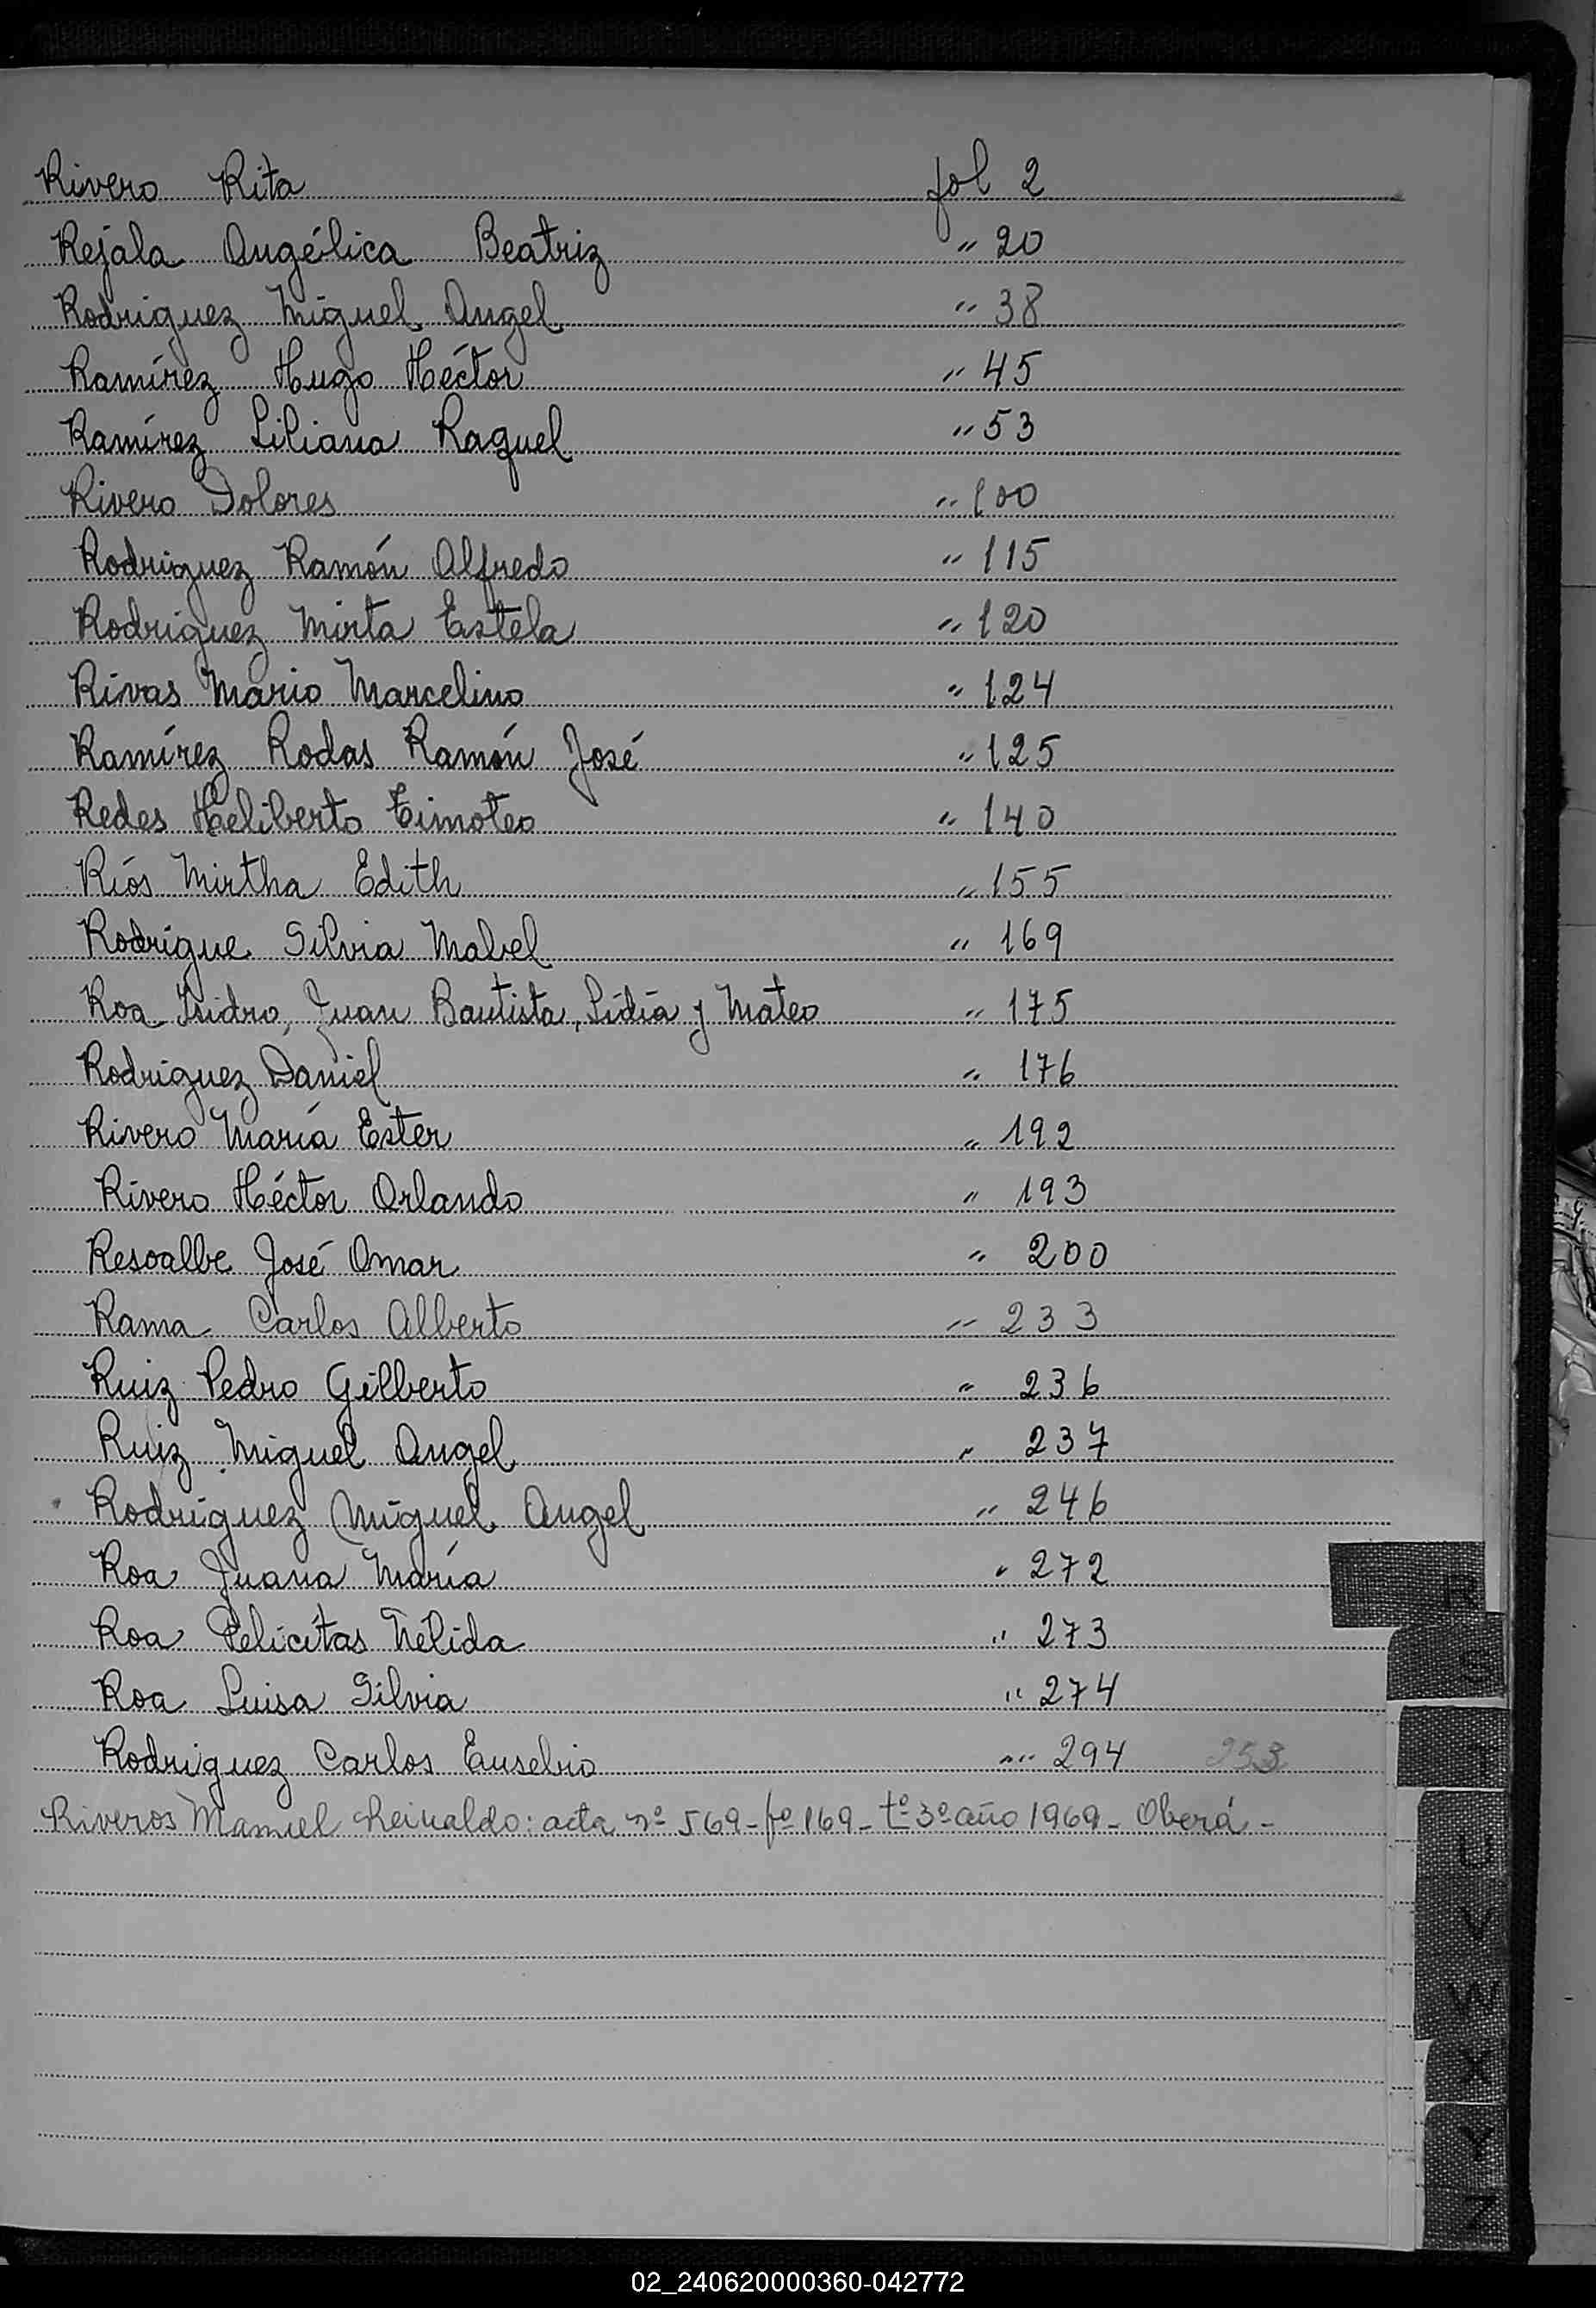 Rivero Rita fol 2
Rejala Angélica Beatriz " 20
Rodriguez Miguel Angel " 38
Ramírez Hugo Héctor " 45
Ramírez Liliana Raquel " 53
Rivero Dolores " 100
Rodriguez Ramón Alfredo " 115
Rodriguez Mirta Estela " 120
Rivas Mario Marcelino " 124
Ramírez Rodas Ramón José " 125
Redes Heliberto Timoteo " 140
Ríos Mirtha Edith " 155
Rodrigue Silvia Mabel " 169
Roa Isidro, Juan Bautista, Lidia y Mateo " 175
Rodriguez Daniel " 176
Rivero María Ester " 192
Rivero Héctor Orlando " 193
Resoalbe José Omar " 200
Rama Carlos Alberto " 233
Ruiz Pedro Gilberto " 236
Ruiz Miguel Angel " 237
Rodriguez Miguel Angel " 246
Roa Juana María " 272
Roa Felicitas Nélida " 273
Roa Luisa Silvia " 274
Rodriguez Carlos Eusebio " 294 253
Riveros Manuel Reinaldo: acta nº 569 - fº 169 - tº 3º año 1969 - Oberá -
R
S
T
U
V
W
X
Y
Z
02_240620000360-042772